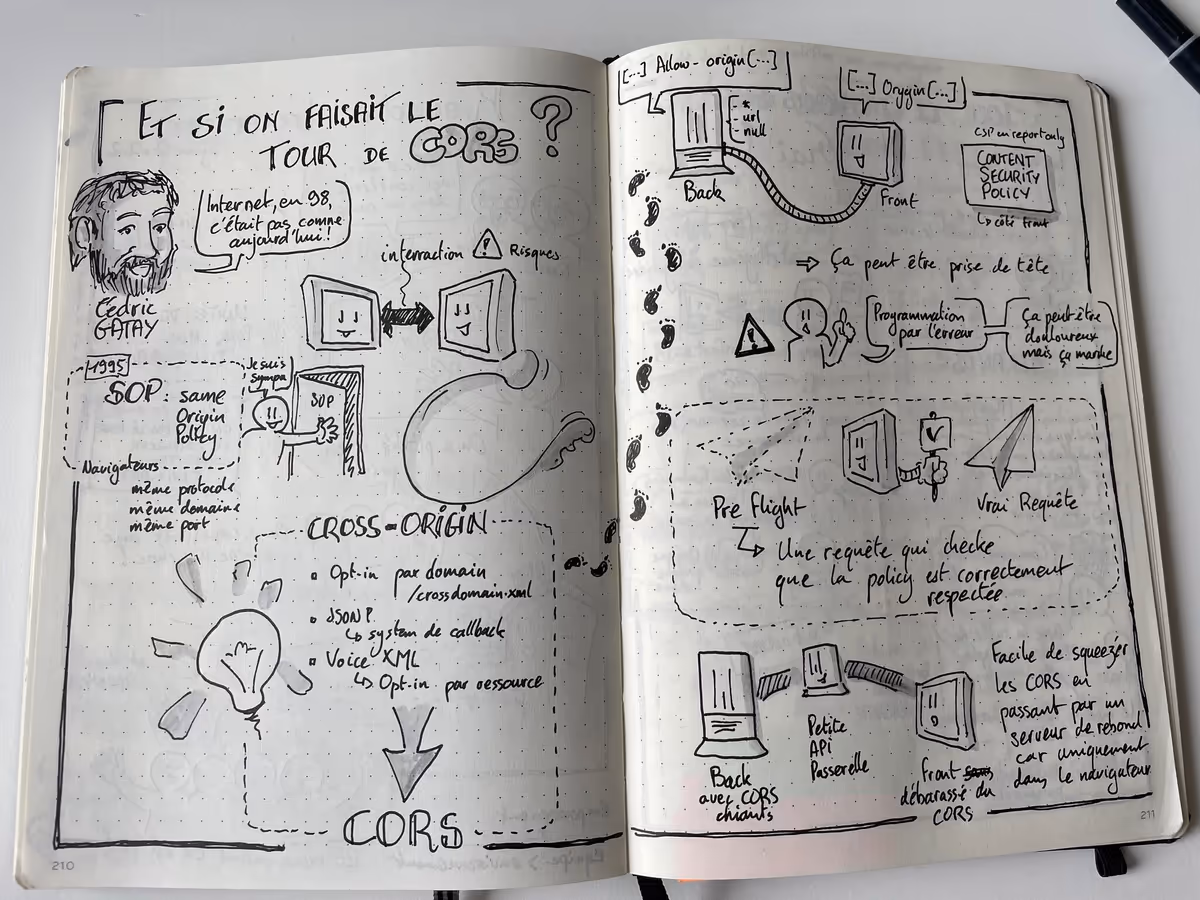 ET SI ON FAISAIT LE
TOUR DE CORS ?
Internet, en 98,
c'était pas comme
aujourd'hui !
Cédric
GATAY
interraction
Risques
1995
SOP : same
Origin
Policy
Navigateurs
même protocole
même domaine
même port
Je suis
sympa
SOP
CROSS-ORIGIN
Opt-in par domain
/crossdomain.xml
JSONP
↳ system de callback
Voice XML
↳ Opt-in par ressource
CORS
210
[...] Allow-origin [...]
- *
- url
- null
Back
[...] Orygin [...]
Front
CSP en report only
CONTENT
SECURITY
POLICY
↳ côté front
⇒ Ça peut être prise de tête
Programmation
par l'erreur
Ça peut être
douloureux
mais ça marche
Pre flight
Vrai Requête
↳ Une requête qui checke
que la policy est correctement
respectée
Back
avec CORS
chiants
Petite
API
Passerelle
Front
débarassé du
CORS
Facile de squeezer
les CORS en
passant par un
serveur de rebond
car uniquement
dans le navigateur
211